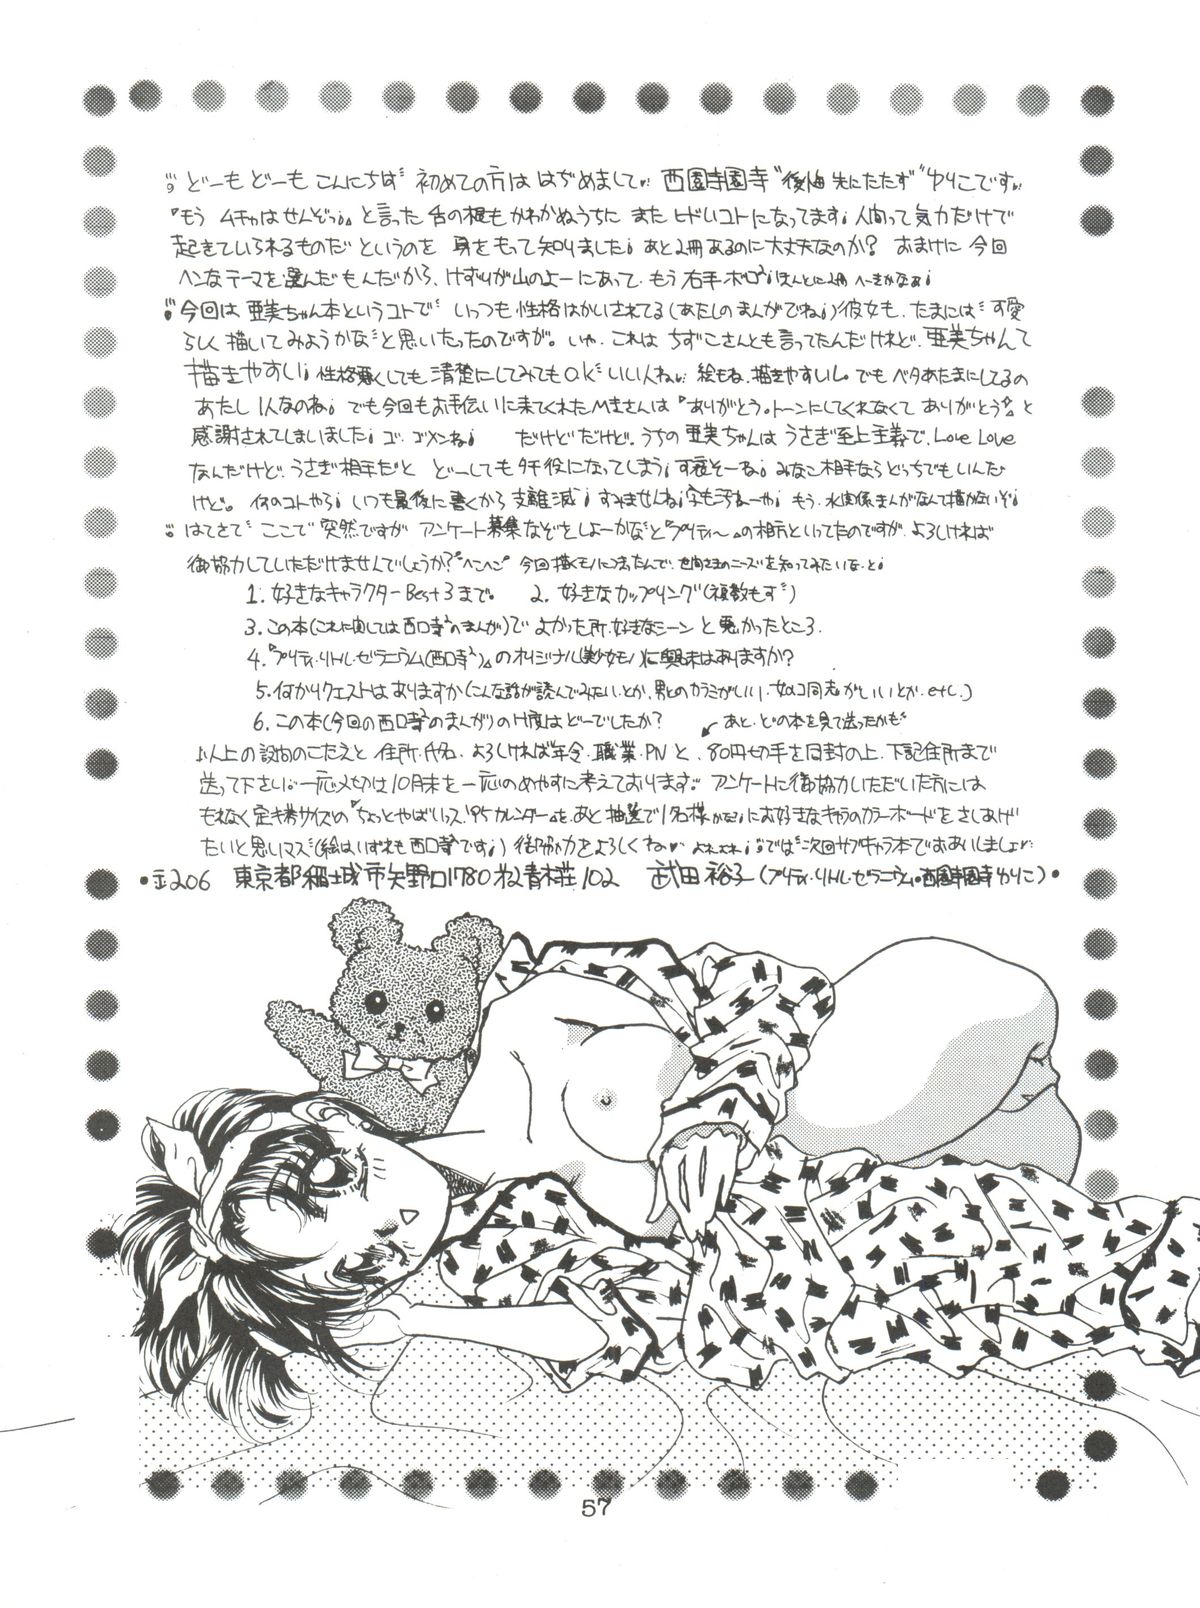 どーもどーもこんにちは 初めての方は はぢめまして 西園寺園寺"後悔先にたたず"ゆりこです
『もう ムチャはせんぞっ』と言った舌の根もかわかぬうちに またヒドいコトになってます 人間って気力だけで
起きていられるものだ というのを 身をもって知りました あと2冊あるのに大丈夫なのか? おまけに今回
ヘンなテーマを選んだもんだから、けずりが山のよーにあって、もう右手ボロ² ほんとに2冊へーきかなぁ
今回は亜美ちゃん本というコトで いっつも性格はかいされてる(あたしのまんがでね)彼女も、たまには可愛
らしく描いてみようかなと思いたったのですが。いや、これは ちずこさんとも言ってたんだけれど、亜美ちゃんて
描きやすい 性格悪くしても、清楚にしてみてもo.k いい人ね 絵もね、描きやすいし。でもベタあたまにしてるの
あたし1人なのね でも今回もお手伝いに来てくれたMさんは『ありがとう。トーンにしてくれなくてありがとう』と
感謝されてしまいました ゴ、ゴメンね だけどだけど。うちの亜美ちゃんはうさぎ至上主義で、Love Love
なんだけど、うさぎ相手だと どーしてもタチ役になってしまう 可哀そーね みなこ相手ならどっちでもいんだ
けど。何のコトやら いつも最後に書くから支離滅 すみませんね 字も汚ねーや もう、水関係まんがなんて描かないぞ
はてさて ここで突然ですが アンケート募集なぞをしよーかなと『プリティ〜』の相方といってたのですが、よろしければ
御協力していただけませんでしょうか?"ぺこぺこ" 今回描くモノにつまったんで、世間さまのニーズを知ってみたいな、と
1. 好きなキャラクターBest3まで。 2. 好きなカップリング(複数も可)
3. この本(これに関しては西口寺²のまんが)でよかった所、好きなシーンと悪かったところ
4.『プリティ・リトル・ゼラニウム(西口寺²)』のオリジナル(美少女モノ)に興味はありますか?
5. 何かリクエストはありますか(こんな話が読んでみたい、とか、男とのカラミがいい、女のコ同志がいいとか、etc.)
6. この本(今回の西口寺²のまんが)のH度はどーでしたか? あと、どの本を見て送ったかも
以上の設問のこたえと 住所、氏名、よろしければ年令・職業・PNと、80円切手を同封の上、下記住所まで
送って下さい。一応〆切は10月末を一応のめやすに考えております。アンケートに御協力いただいた方には
もれなく定形サイズの『ちょっとやばいっス '95カレンダー』を、あと抽選で1名様かな にお好きなキャラのカラーボードをさしあげ
たいと思いマス(絵はいずれも西口寺²です) 御協力をよろしくね では次回サブキャラ本でおあいしましょ
57